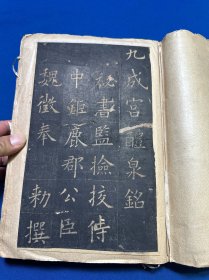 九成宫醴泉銘
秘書監撿挍侍
中鉅鹿郡公臣
魏徵奉 勑撰